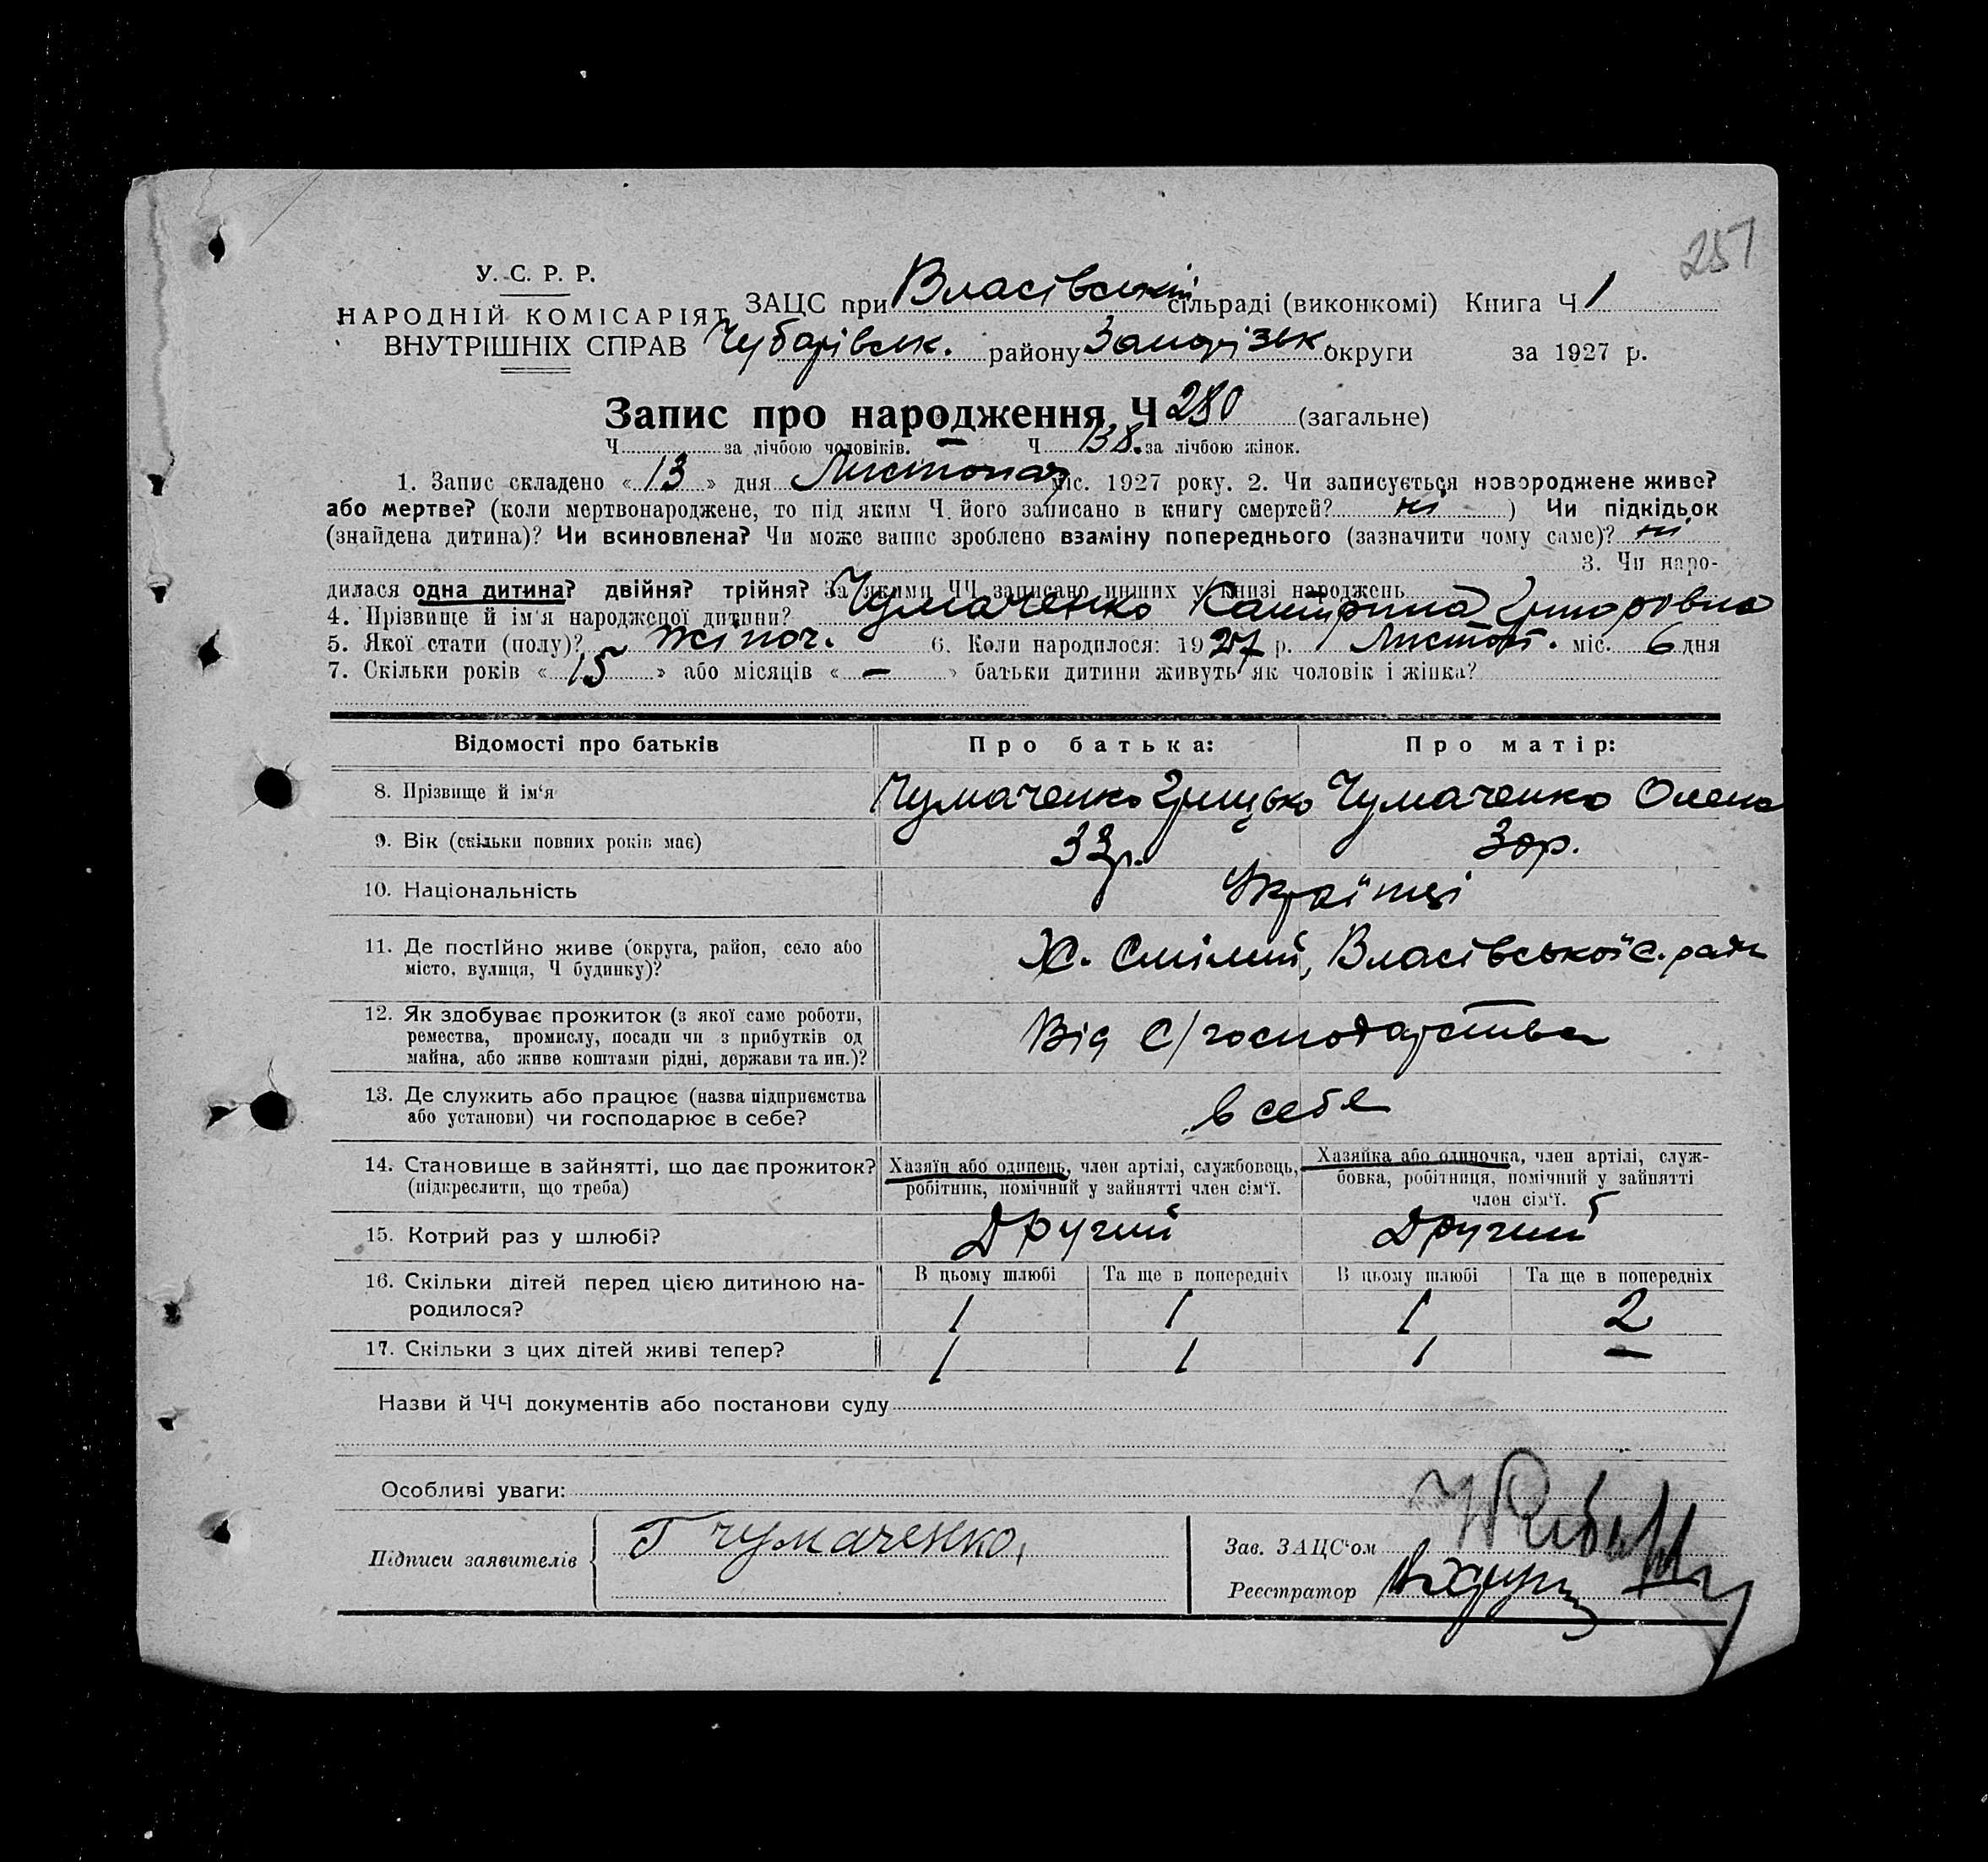 251
У. С. Р. Р.
НАРОДНІЙ КОМІСАРІЯТ
ВНУТРІШНІХ СПРАВ
ЗАЦС при Власівській сільраді (виконкомі) Книга Ч 1
Чубарівськ. району Запорізьк. округи за 1927 р.
Запис про народження Ч 280 (загальне)
Ч — за лічбою чоловіків. Ч 138. за лічбою жінок.
1. Запис складено « 13 » дня Листопад міс. 1927 року. 2. Чи записується новороджене живе?
або мертве? (коли мертвонароджене, то під яким Ч. його записано в книгу смертей? ні ) Чи підкідьок
(знайдена дитина)? Чи всиновлена? Чи може запис зроблено взаміну попереднього (зазначити чому саме)? ні
3. Чи наро-
дилася одна дитина? двійня? трійня? За якими ЧЧ записано инших у книзі народжень
4. Прізвище й ім'я народженої дитини? Чумаченко Катирина Григоровна
5. Якої стати (полу)? жіноч. 6. Коли народилося: 1927 р. Листоп. міс. 6 дня
7. Скільки років « 15 » або місяців « — » батьки дитини живуть як чоловік і жінка?
Відомості про батьків Про батька: Про матір:
8. Прізвище й ім'я Чумаченко Грицько Чумаченко Олена
9. Вік (скільки повних років має) 33 р. 30 р.
10. Національність Українці
11. Де постійно живе (округа, район, село або
місто, вулиця, Ч будинку)? Х. Смілий, Власівської с. ради
12. Як здобуває прожиток (з якої саме роботи,
ремества, промислу, посади чи з прибутків од
майна, або живе коштами рідні, держави та ин.)? Від с/господарства
13. Де служить або працює (назва підприємства
або установи) чи господарює в себе? в себе
14. Становище в зайнятті, що дає прожиток?
(підкреслити, що треба)
Хазяїн або одинець, член артілі, службовець,
робітник, помічний у зайнятті член сім'ї.
Хазяйка або одиночка, член артілі, служ-
бовка, робітниця, помічний у зайнятті
член сім'ї.
15. Котрий раз у шлюбі? Другий Другий
16. Скільки дітей перед цією дитиною на-
родилося?
В цьому шлюбі Та ще в попередніх В цьому шлюбі Та ще в попередніх
1 1 1 2
17. Скільки з цих дітей живі тепер? 1 1 1 —
Назви й ЧЧ документів або постанови суду
Особливі уваги:
Підписи заявителів Г Чумаченко,
Зав. ЗАЦС'ом
Реєстратор